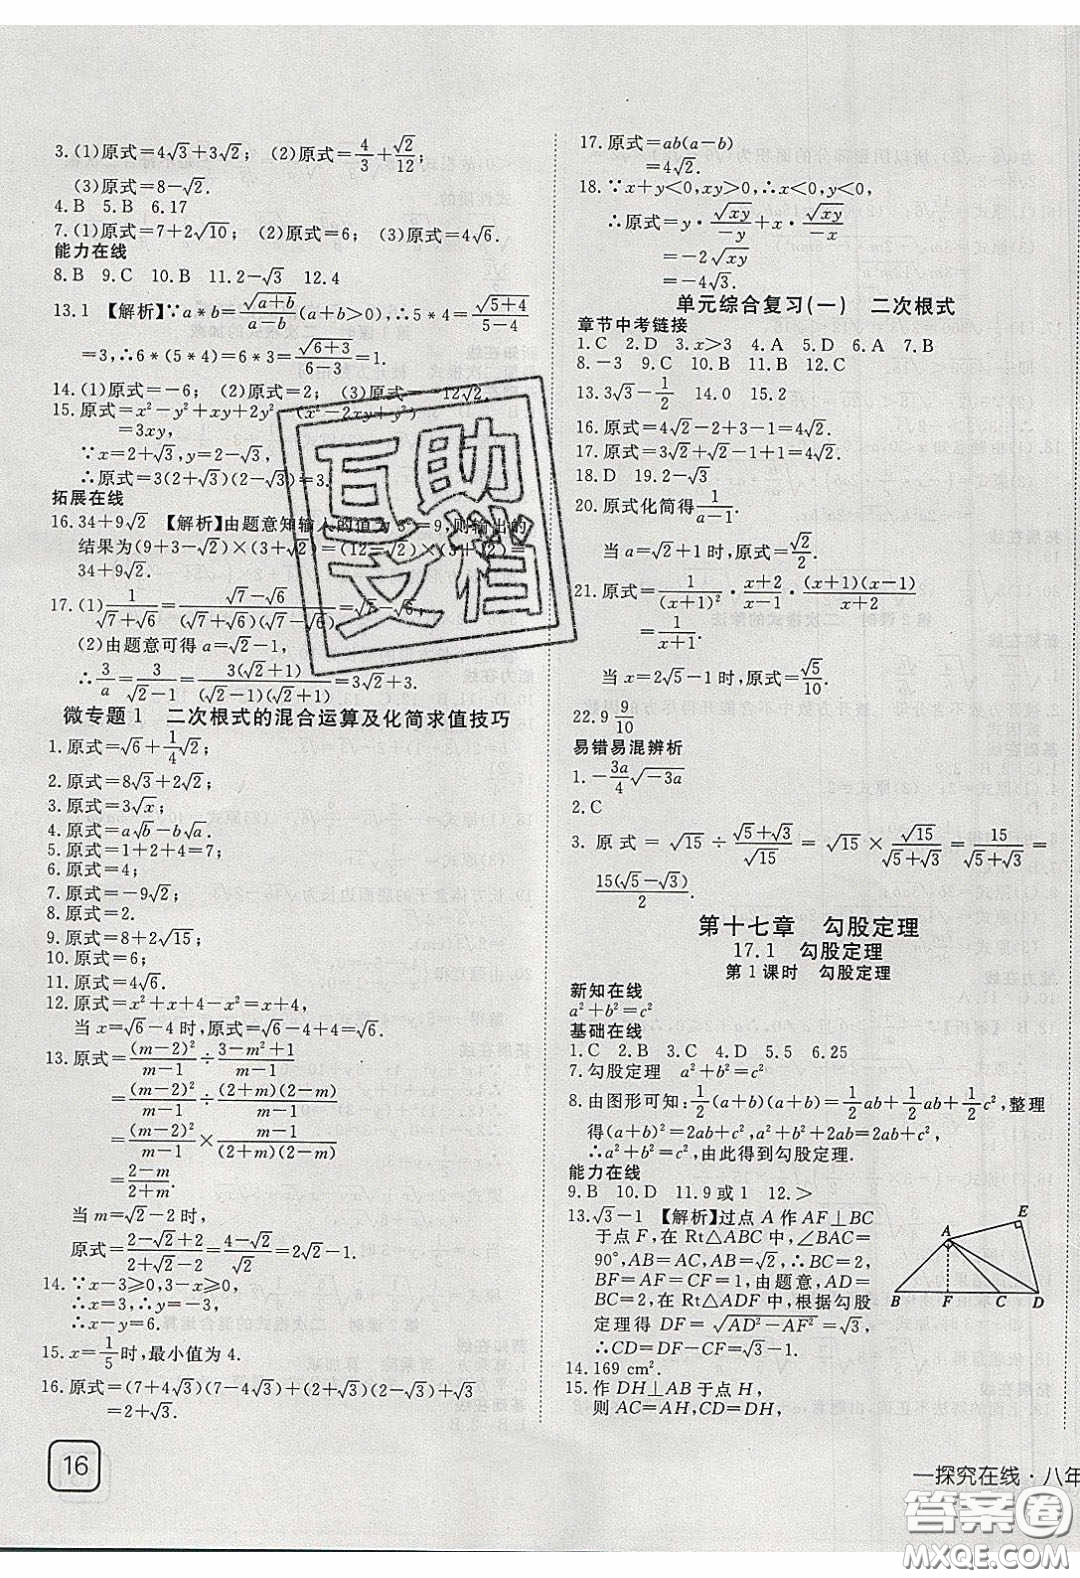 3.(1)原式=4√3+3√2; (2)原式=4/3+√2/12;
(3)原式=8-√2.
4.B 5.B 6.17
7.(1)原式=7+2√10; (2)原式=6; (3)原式=4√6.
能力在线
8.B 9.C 10.B 11.2-√3 12.4
13.1 【解析】∵a*b=√(a+b)/(a-b)(a+b>0),∴5*4=√(5+4)/(5-4)
=3,∴6*(5*4)=6*3=√(6+3)/(6-3)=1.
14.(1)原式=-6; (2)原式=2; (3)原式=-12√2.
15.原式=x²-y²+xy+2y²-(x²-2xy+y²)
=3xy,
∵x=2+√3,y=2-√3,
∴原式=3(2+√3)(2-√3)=3.
拓展在线
16.34+9√2 【解析】由题意知输入的值为3²=9,则输出的
结果为(9+3-√2)×(3+√2)=(12-√2)×(3+√2)=
34+9√2.
17.(1)1/(√7+√6)=(√7-√6)/((√7+√6)(√7-√6))=√7-√6;
(2)由题意可得a=√2-1,
∴3/a=3/(√2-1)=3(√2+1)/((√2-1)(√2+1))=3√2+3.
微专题1 二次根式的混合运算及化简求值技巧
1.原式=√6+1/4√2;
2.原式=8√3+2√2;
3.原式=3√x;
4.原式=a√b-b√a.
5.原式=1+2+4=7;
6.原式=4;
7.原式=-9√2;
8.原式=2.
9.原式=8+2√15;
10.原式=6;
11.原式=4√6.
12.原式=x²+x+4-x²=x+4,
当x=√6-4时,原式=√6-4+4=√6.
13.原式=(m-2)²/(m-1)÷(3-m²+1)/(m-1)
=(m-2)²/(m-1)÷(2+m)(2-m)/(m-1)
=(m-2)²/(m-1)×(m-1)/((2+m)(2-m))
=(2-m)/(2+m).
当m=√2-2时,
原式=(2-√2+2)/(2+√2-2)=(4-√2)/√2=2√2-1.
14.∵x-3≥0,3-x≥0,
∴x=3,∴y=-3,
∴x-y=6.
15.x=1/5时,最小值为4.
16.原式=(7+4√3)(7-4√3)+(2+√3)(2-√3)+√3
=2+√3.
16
17.原式=ab(a-b)
=4√2.
18.∵x+y<0,xy>0,∴x<0,y<0,
∴原式=y·√xy/-y+x·√xy/-x
=-2√xy
=-4√3.
单元综合复习(一) 二次根式
章节中考链接
1.C 2.D 3.x>3 4.A 5.D 6.A 7.B
8.-3 9.C 10.B 11.B 12.C
13.3√3-1/2 14.0 15.2
16.原式=4√2-2+3-1=4√2.
17.原式=3√2+√2=4√2.
18.D 19.2-√3
20.原式化简得1/(a-1).
当a=√2+1时,原式=√2/2.
21.原式=1/(x+1)²·(x+2)/(x-1)·(x+1)(x-1)/(x+2)
=1/(x+1).
当x=2√5-1时,原式=√5/10.
22.9 9/10
易错易混辨析
1.-3a/4√-3a
2.C
3.原式=√15÷(√5+√3)/√15=√15×√15/(√5+√3)=15/(√5+√3)=
15(√5-√3)/2.
第十七章 勾股定理
17.1 勾股定理
第1课时 勾股定理
新知在线
a²+b²=c²
基础在线
1.C 2.B 3.C 4.D 5.5 6.25
7.勾股定理 a²+b²=c²
8.由图形可知:1/2(a+b)(a+b)=1/2ab+1/2ab+1/2c²,整理
得(a+b)²=2ab+c²,a²+b²+2ab=2ab+c²,
∴a²+b²=c².由此得到勾股定理.
能力在线
9.B 10.D 11.9或1 12.>
13.√3-1 【解析】过点A作AF⊥BC
于点F,在Rt△ABC中,∠BAC=
90°,AB=AC,AB=√2,∴BC=2,
BF=AF=CF=1,由题意,AD=
BC=2,在Rt△ADF中,根据勾股
定理得DF=√(AD²-AF²)=√3,
∴CD=DF-CF=√3-1.
E
A
B F C D
14.169 cm².
15.作DH⊥AB于点H,
则AC=AH,CD=DH,
一探究在线·八年
互助
文档
答案卷
MXQE.COM